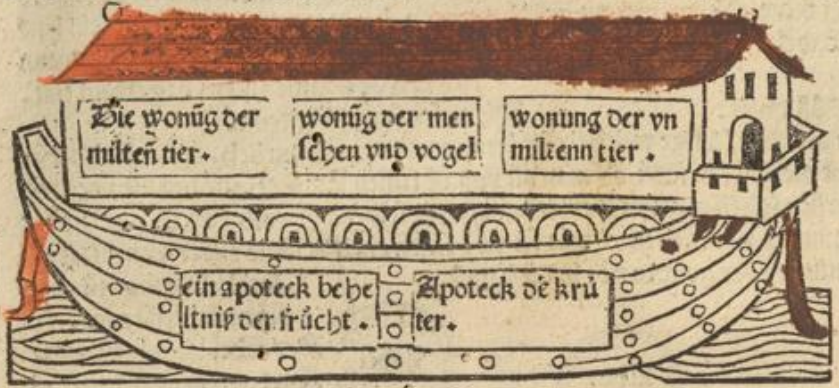 Die wonūg der
milteñ tier.
wonūg der men
schen vnd vogel
wonung der vn
miltenn tier.
ein apoteck behe
ltniß der frücht.
Apoteck dē krü
ter.